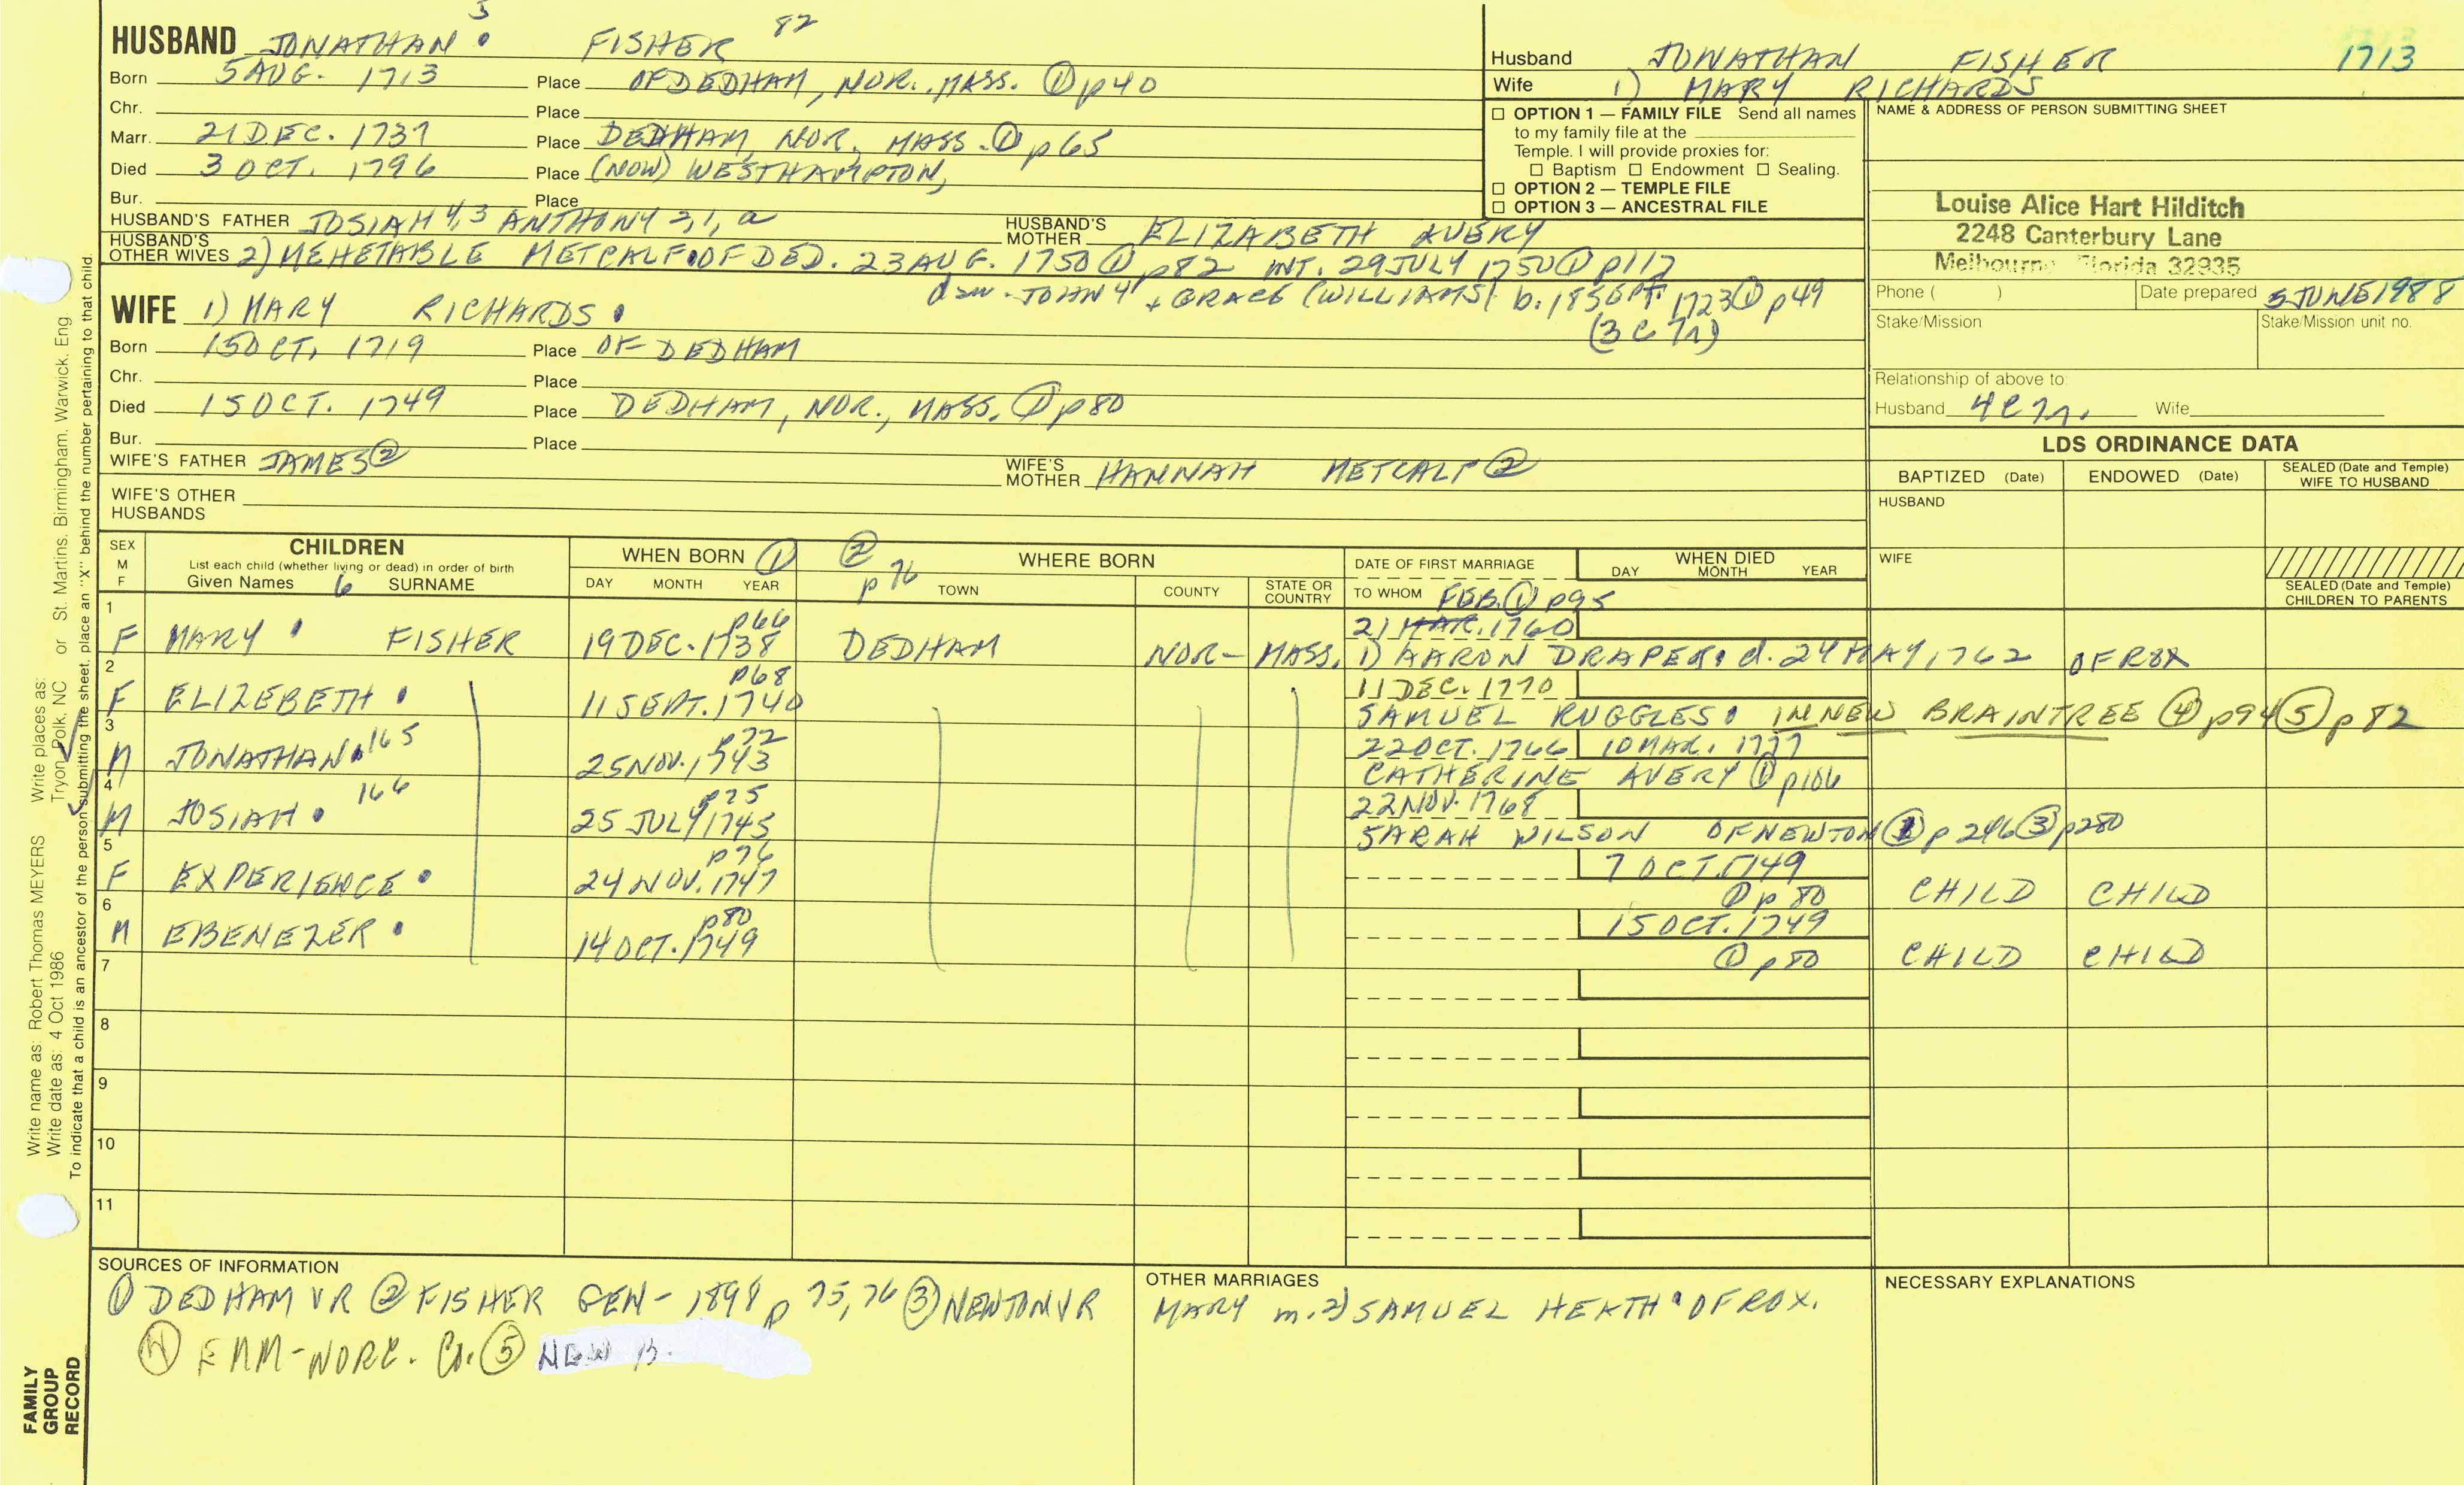 5
82
HUSBAND JONATHAN FISHER
Born 5 AUG. 1713 Place OF DEDHAM, NOR., MASS. ① p40
Chr. Place
Marr. 21 DEC. 1737 Place DEDHAM, NOR., MASS. ① p65
Died 3 OCT. 1796 Place (NOW) WESTHAMPTON,
Bur. Place
HUSBAND'S FATHER JOSIAH 4,3 ANTHONY 2,1, a HUSBAND'S MOTHER ELIZABETH AVERY
HUSBAND'S OTHER WIVES 2) MEHETABLE METCALF OF DED. 23 AUG. 1750 ① p82 INT. 29 JULY 1750 ① p117
dau. JOHN 4 + GRACE (WILLIAMS) b. 18 SEPT. 1723 ① p49
(3C7r)
WIFE 1) MARY RICHARDS
Born 15 OCT. 1719 Place OF DEDHAM
Chr. Place
Died 15 OCT. 1749 Place DEDHAM, NOR., MASS. ① p80
Bur. Place
WIFE'S FATHER JAMES ② WIFE'S MOTHER HANNAH METCALF ②
WIFE'S OTHER HUSBANDS
Husband JONATHAN FISHER 1713
Wife 1) MARY RICHARDS
☐ OPTION 1 — FAMILY FILE Send all names
to my family file at the
Temple. I will provide proxies for:
☐ Baptism ☐ Endowment ☐ Sealing.
☐ OPTION 2 — TEMPLE FILE
☐ OPTION 3 — ANCESTRAL FILE
NAME & ADDRESS OF PERSON SUBMITTING SHEET
Louise Alice Hart Hilditch
2248 Canterbury Lane
Melbourne Florida 32935
Phone ( ) Date prepared 5 JUNE 1988
Stake/Mission Stake/Mission unit no.
Relationship of above to:
Husband 4C7r. Wife
LDS ORDINANCE DATA
BAPTIZED (Date) ENDOWED (Date) SEALED (Date and Temple) WIFE TO HUSBAND
HUSBAND
WIFE
SEALED (Date and Temple) CHILDREN TO PARENTS
SEX M F
CHILDREN
List each child (whether living or dead) in order of birth
Given Names 6 SURNAME
WHEN BORN ①
DAY MONTH YEAR
② p76
WHERE BORN
TOWN COUNTY STATE OR COUNTRY
DATE OF FIRST MARRIAGE
TO WHOM
WHEN DIED
DAY MONTH YEAR
1 F MARY FISHER p66 19 DEC. 1738 DEDHAM NOR- MASS. FEB. ① p95 21 MAR. 1760 1) AARON DRAPER d. 24 MAY, 1762 OF ROX
2 F ELIZEBETH p68 11 SEPT. 1740 11 DEC. 1770 SAMUEL RUGGLES IN NEW BRAINTREE ④ p94 ⑤ p82
3 M JONATHAN 165 p72 25 NOV. 1743 22 OCT. 1766 10 MAR. 1777 CATHERINE AVERY ① p106
4 M JOSIAH 166 p75 25 JULY 1745 22 NOV. 1768 SARAH WILSON OF NEWTON ① p246 ③ p280
5 F EXPERIENCE p76 24 NOV. 1747 7 OCT. 1749 ① p80 CHILD CHILD
6 M EBENEZER p80 14 OCT. 1749 15 OCT. 1749 ① p80 CHILD CHILD
7
8
9
10
11
SOURCES OF INFORMATION
① DEDHAM VR ② FISHER GEN- 1898 p 75,76 ③ NEWTON VR
④ EMM-WORC. Co. ⑤ NEW B.
OTHER MARRIAGES
MARY m. 2) SAMUEL HEATH OF ROX.
NECESSARY EXPLANATIONS
Write name as: Robert Thomas MEYERS Write places as: Tryon, Polk, NC or St. Martins, Birmingham, Warwick, Eng
Write date as: 4 Oct 1986
To indicate that a child is an ancestor of the person submitting the sheet, place an "X" behind the number pertaining to that child.
FAMILY GROUP RECORD